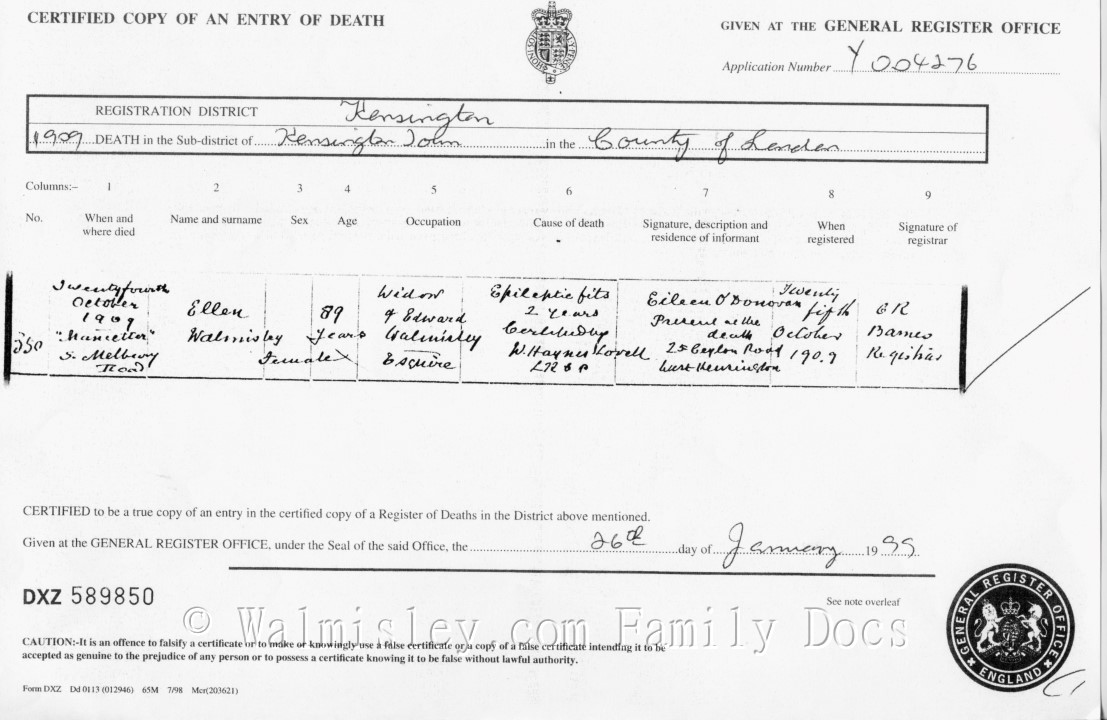 CERTIFIED COPY OF AN ENTRY OF DEATH
GIVEN AT THE GENERAL REGISTER OFFICE
Application Number Y 004276
REGISTRATION DISTRICT Kensington
1909 DEATH in the Sub-district of Kensington in the County of London
Columns:– 1 2 3 4 5 6 7 8 9
No. When and where died Name and surname Sex Age Occupation Cause of death Signature, description and residence of informant When registered Signature of registrar
Twentyfourth
October
1909
5. Melbury
Road
Ellen
Walmisley
Female
89
Years
Widow
of Edward
Walmisley
Esquire
Epileptic fits
2 Years
Certified by
W. Haynes Lovell
Eileen O'Donovan
Present at the
death
25 Ceylon Road
West Kensington
Twenty
fifth
October
1909
Barnes
Registrar
CERTIFIED to be a true copy of an entry in the certified copy of a Register of Deaths in the District above mentioned.
Given at the GENERAL REGISTER OFFICE, under the Seal of the said Office, the 26th day of January 1999
DXZ 589850
See note overleaf
© Walmisley.com Family Docs
CAUTION:-It is an offence to falsify a certificate or to make or knowingly use a false certificate or a copy of a false certificate intending it to be
accepted as genuine to the prejudice of any person or to possess a certificate knowing it to be false without lawful authority.
Form DXZ Dd 0113 (012946) 65M 7/98 Mcr(203621)
GENERAL REGISTER OFFICE
ENGLAND